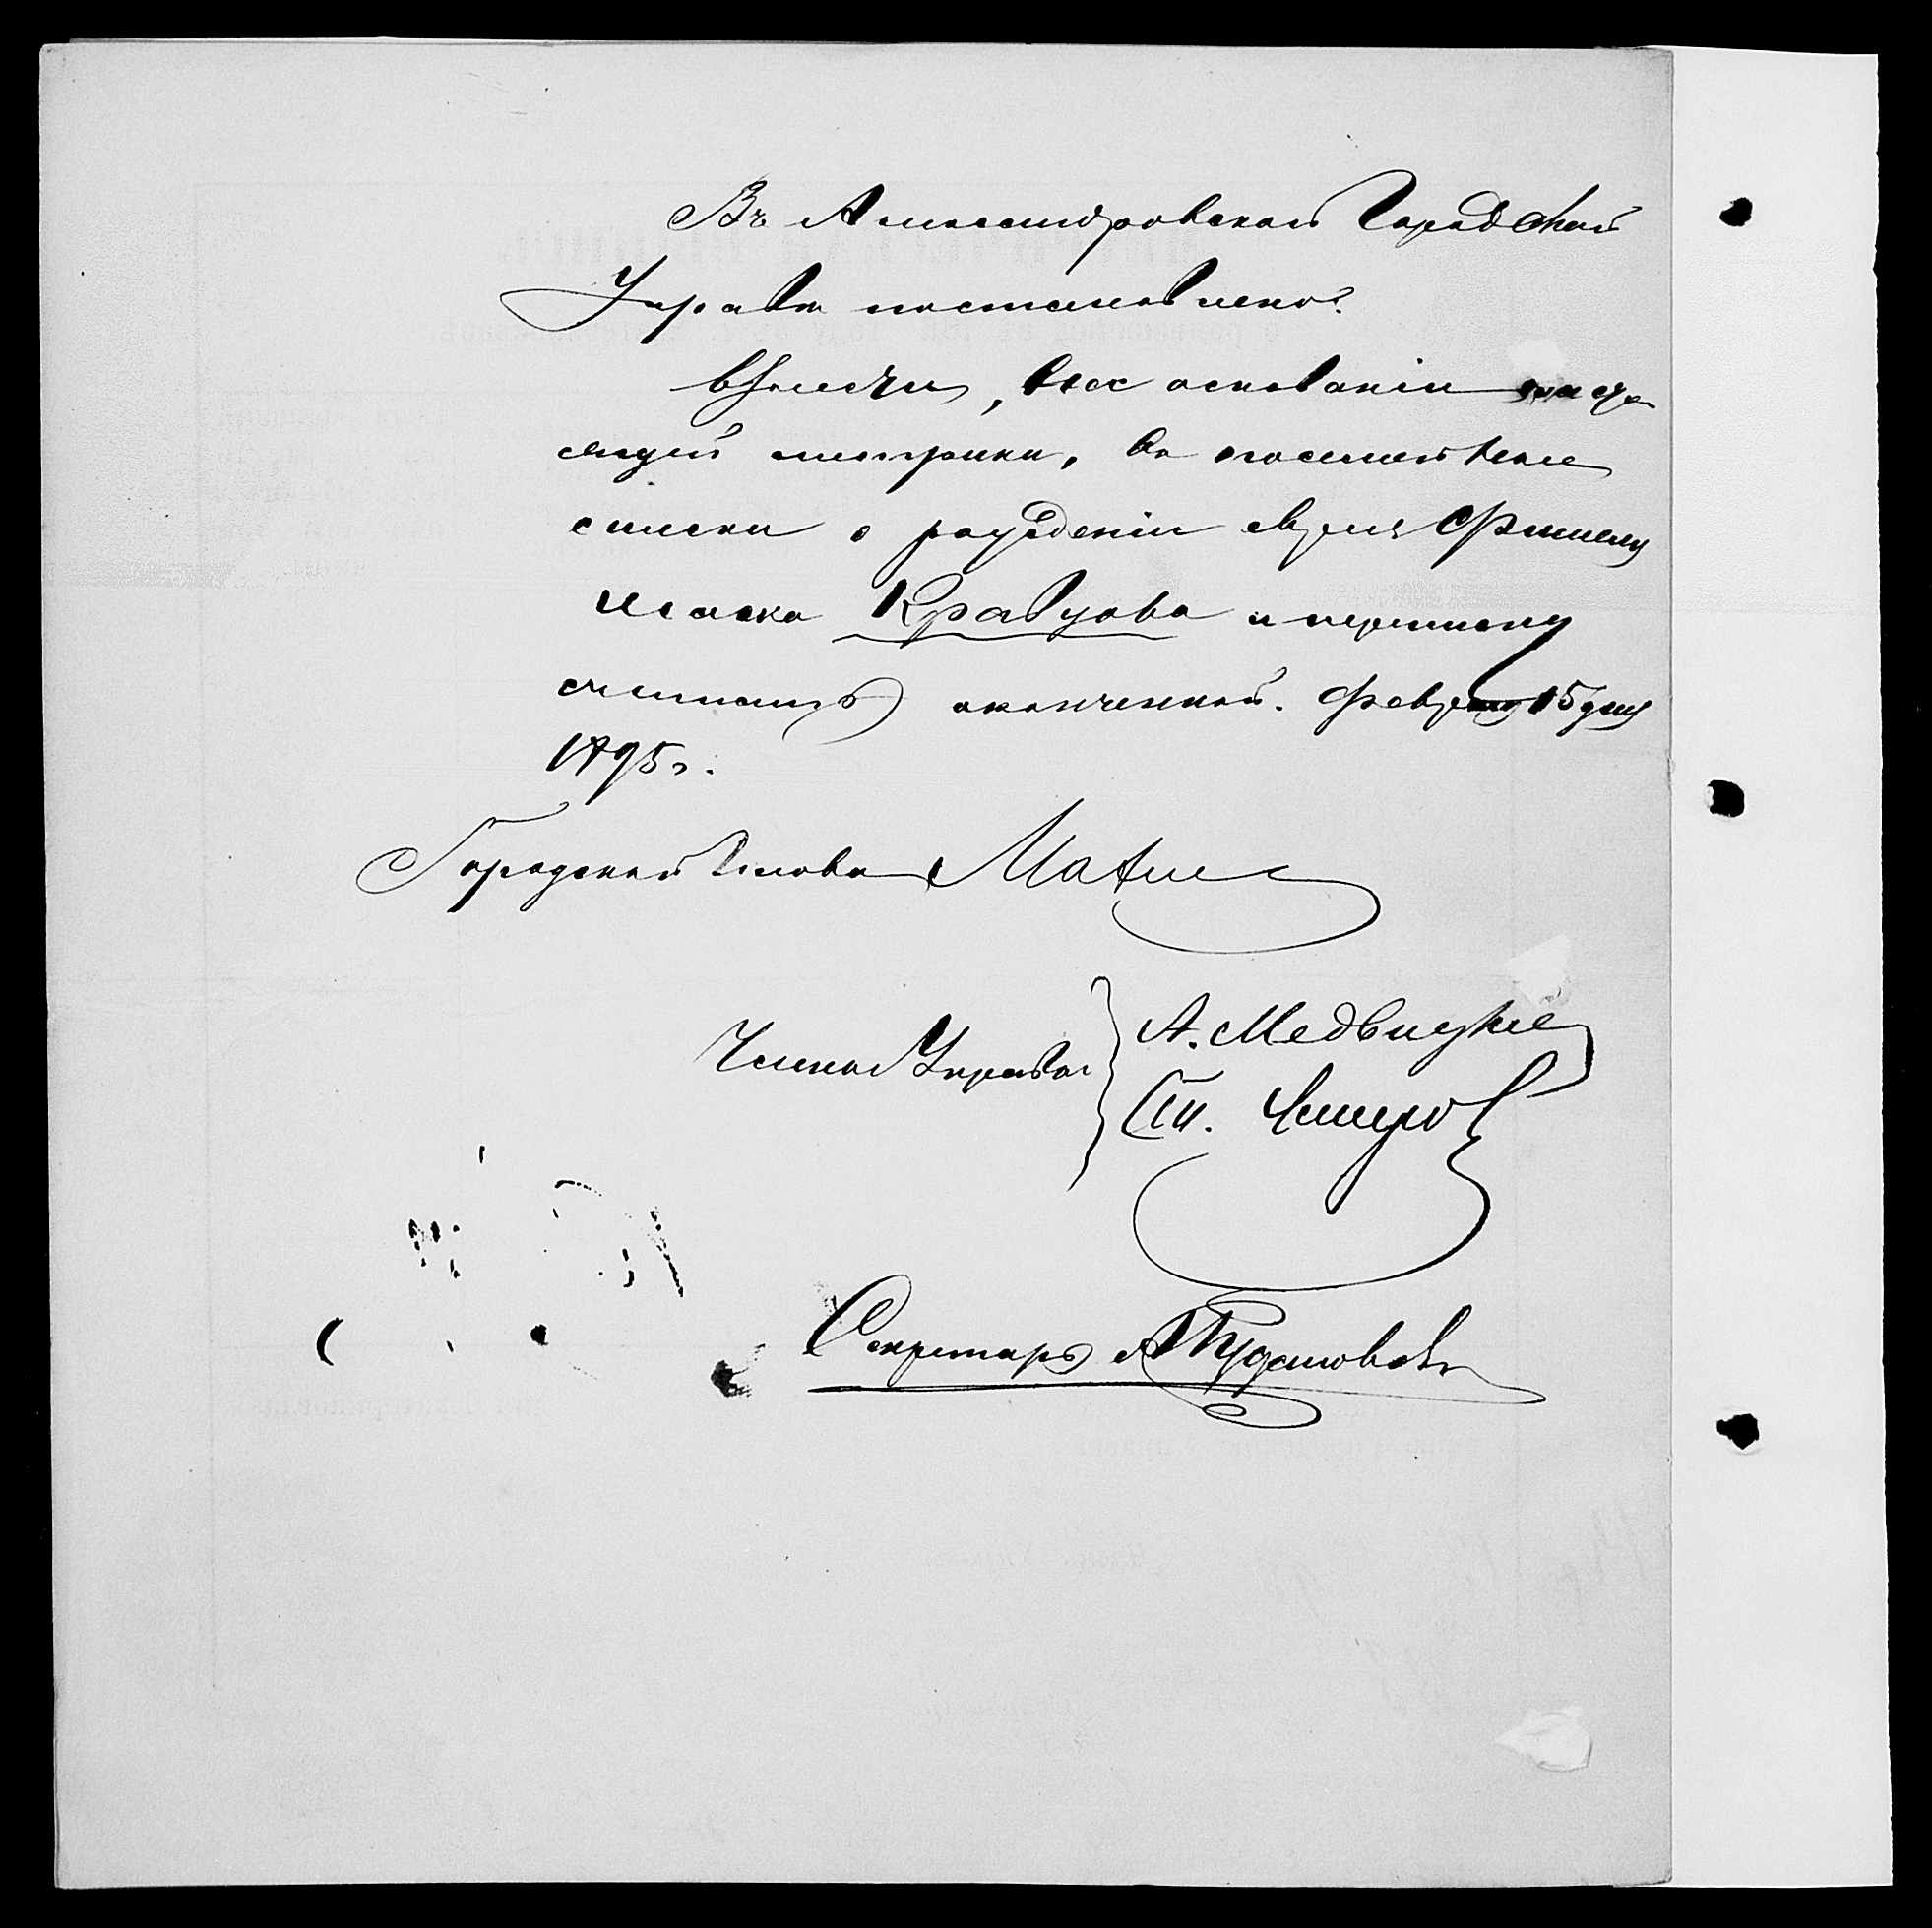 Въ Александровской Городской
Управѣ постановлено:
внести, на основаніи настоя-
щей метрики, въ посемейные
списки о рожденіи еврея
Ицека Кравцова и переписку
считать оконченной. Февраля 15 дня
1895 г.
Городской Голова
Члены Управы
А. Медвицкіе
Ст.
Секретарь